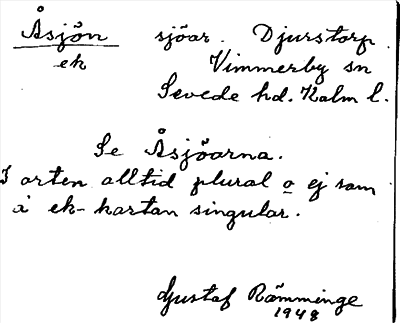 Åsjön sjöar. Djurstorp
ek Vimmerby sn
Sevede hd. Kalm l.
Se Åsjöarna.
I orten alltid plural o ej som
å ek-kartan singular.
Gustaf Rämminge
1948